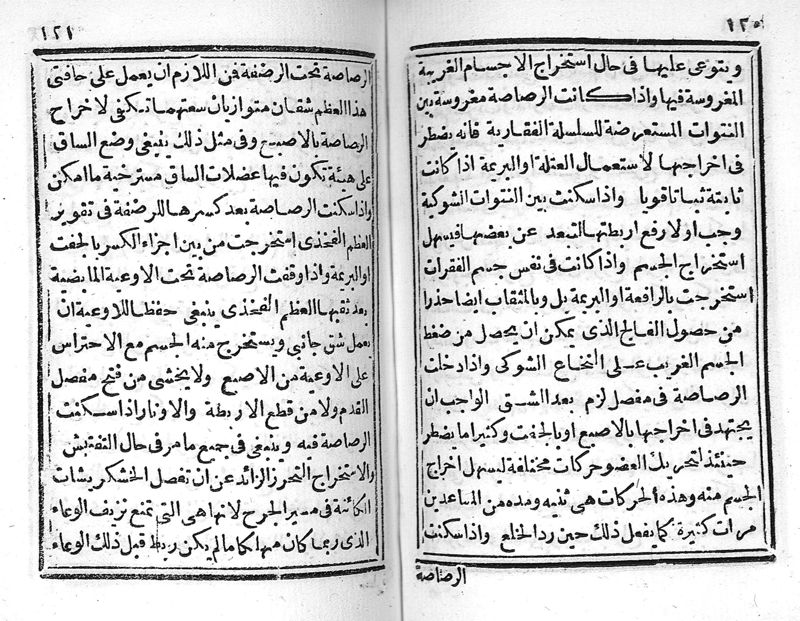 ١٢٠
ويتوعى عليها فى حال استخراج الاجسام الغريبة
المغروسة فيها واذا كانت الرصاصة مغروسة بين
النتوات المستعرضة للسلسلة الفقارية فانه يضطر
فى اخراجها لاستعمال العتلة او البريمة اذا كانت
ثابتة ثباتا قويا واذا سكنت بين النتوات الشوكية
وجب اولا رفع اربطتها لتبعد عن بعضها فيسهل
استخراج الجسم واذا كانت فى نفس جسم الفقرات
استخرجت بالرافعة او البريمة بل وبالمثقاب ايضا حذرا
من حصول الفالج الذى يمكن ان يحصل من ضغط
الجسم الغريب على النخاع الشوكى واذا دخلت
الرصاصة فى مفصل لزم بعد الشق الواجب ان
يجتهد فى اخراجها بالاصبع او بالجفت وكثيرا ما يضطر
حينئذ لتحريك العضو حركات مختلفة ليسهل اخراج
الجسم منه وهذه الحركات هى ثنيه ومده من المساعدين
مرات كثيرة كما يفعل ذلك حين رد الخلع واذا سكنت
الرصاصة
١٢١
الرصاصة تحت الرضفة فن اللازم ان يعمل على حافتى
هذا العظم شقان متوازيان سعتهما تكفى لاخراج
الرصاصة بالاصبع وفى مثل ذلك ينبغى وضع الساق
على هيئة تكون فيها عضلات الساق مسترخية ما امكن
واذا سكنت الرصاصة بعد كسرها للرضفة فى تقوير
العظم الفخذى استخرجت من بين اجزاء الكسر بالجفت
او البريمة واذا وقفت الرصاصة تحت الاوعية المابضية
بعد ثقبها العظم الفخذى ينبغى حفظا للاوعية ان
يعمل شق جانبى ويستخرج منه الجسم مع الاحتراس
على الاوعية من الاصبع ولا يخشى من فتح مفصل
القدم ولا من قطع الاربطة والاوتار اذا سكنت
الرصاصة فيه وينبغى فى جميع ما مر فى حال التفتيش
والاستخراج التحرز الزائد عن ان تفصل الخشكريشات
الكائنة فى مسير الجرح لانها هى التى تمنع نزيف الوعاء
الذى ربما كان مهلكا ما لم يكن ربط قبل ذلك الوعاء